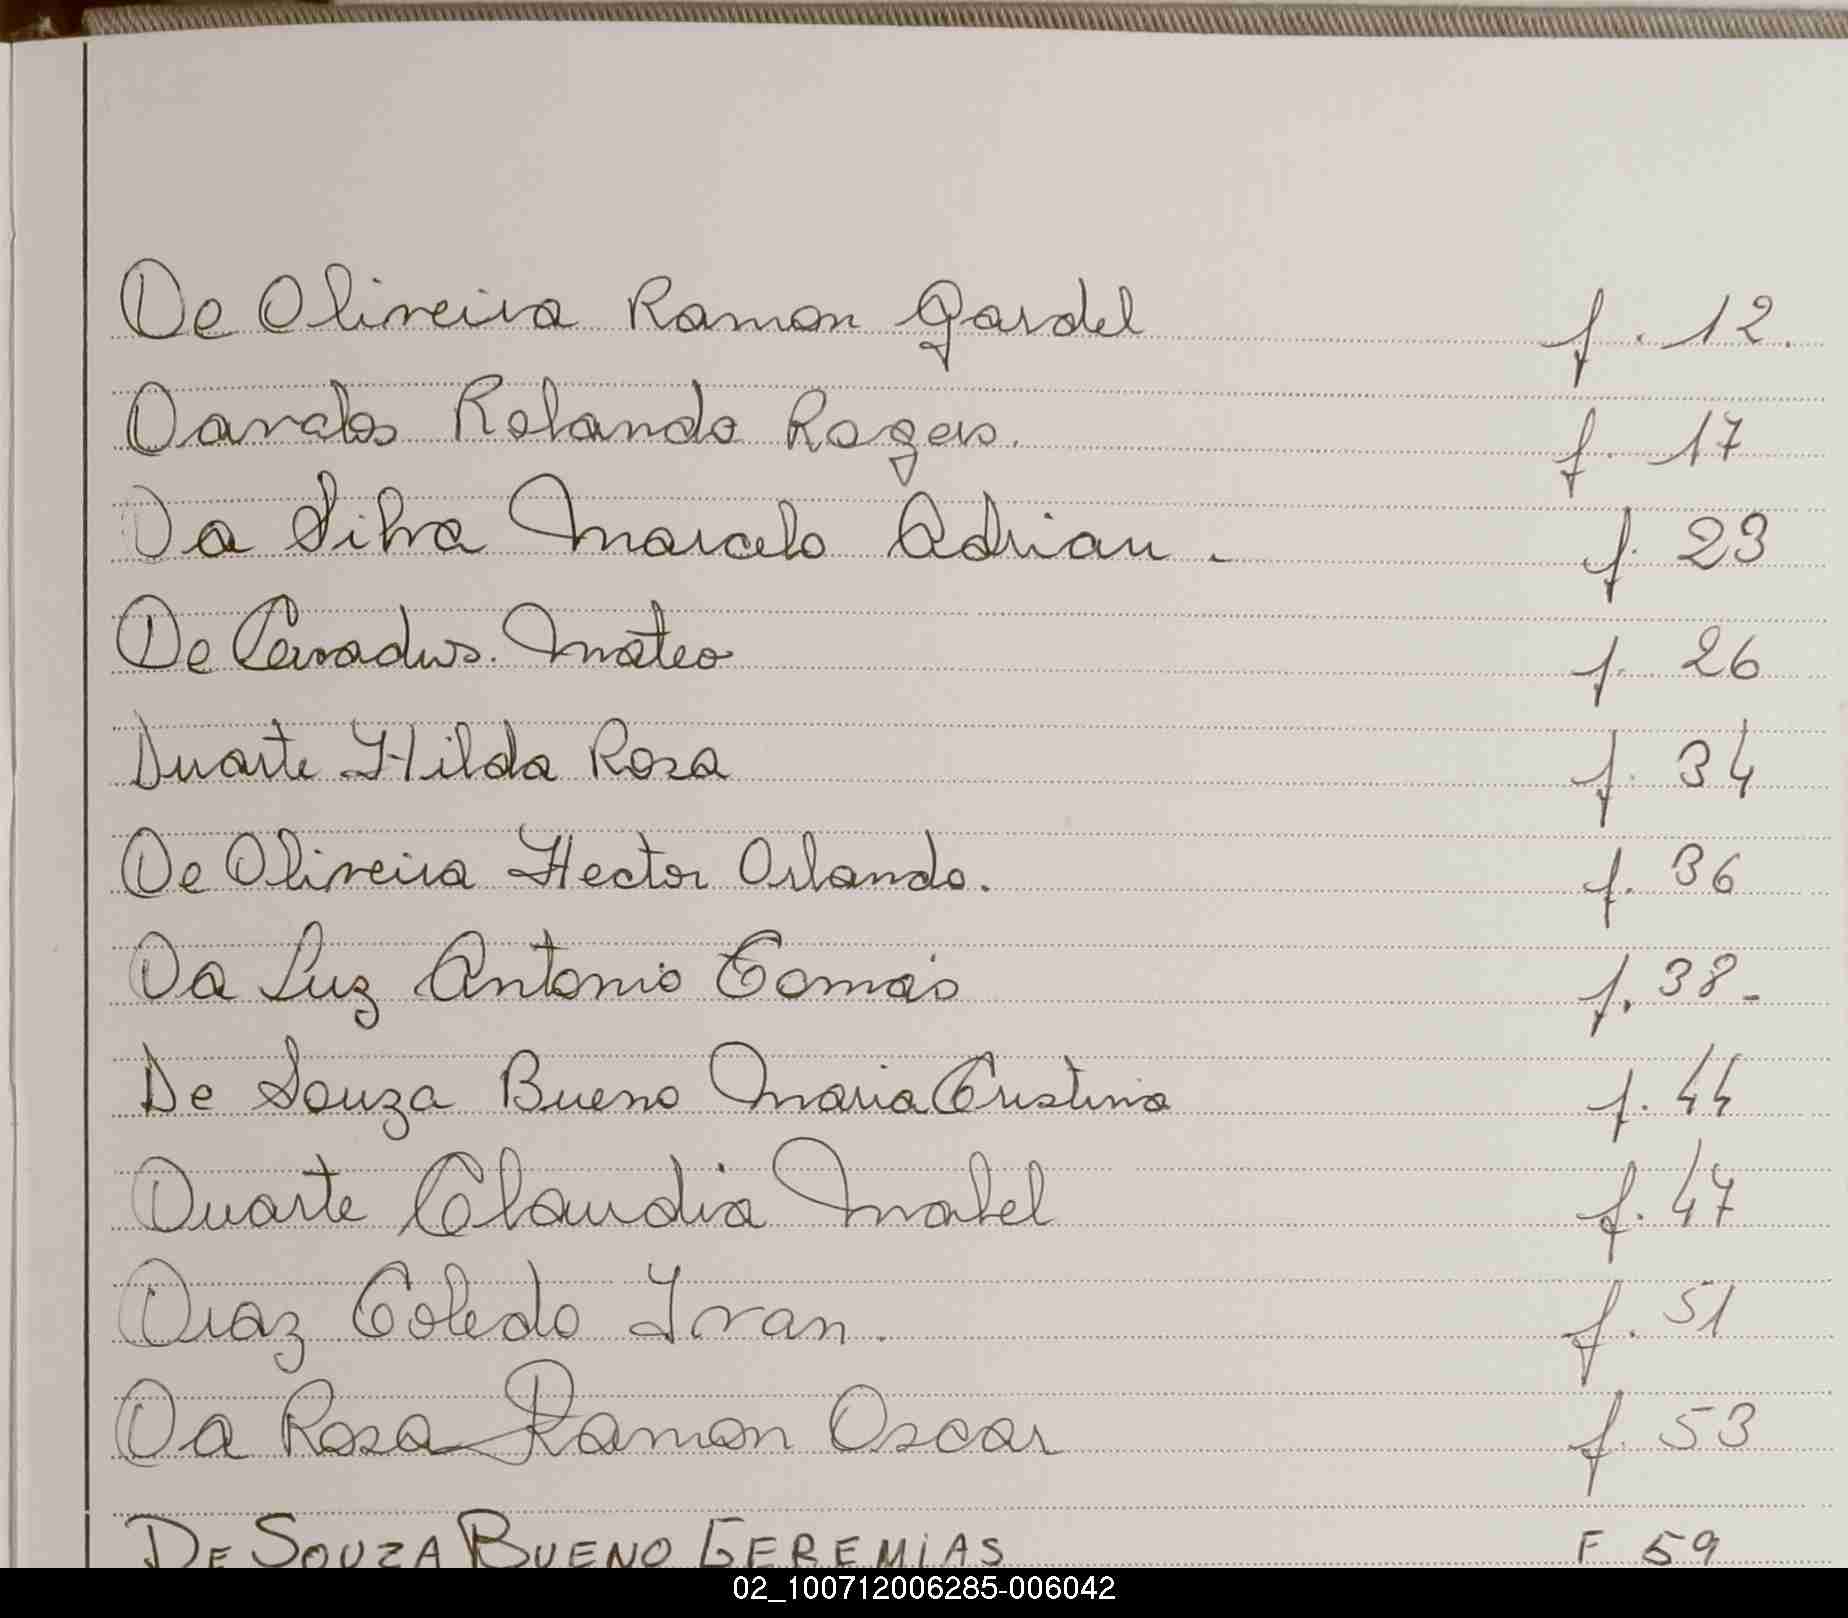 De Oliveira Ramon Gardel f. 12.
Davalos Rolando Rogers. f. 17
Da Silva Marcelo Adrian. f. 23
De Mateo f. 26
Duarte Hilda Rosa f. 34
De Oliveira Hector Orlando. f. 36
Da Luz Antonio Tomás f. 38-
De Souza Bueno Maria Cristina f. 44
Duarte Claudia Mabel f. 47
Diaz Toledo Ivan. f. 51
Da Rosa Ramon Oscar f. 53
DE SOUZA BUENO GEREMIAS F 59
02_100712006285-006042